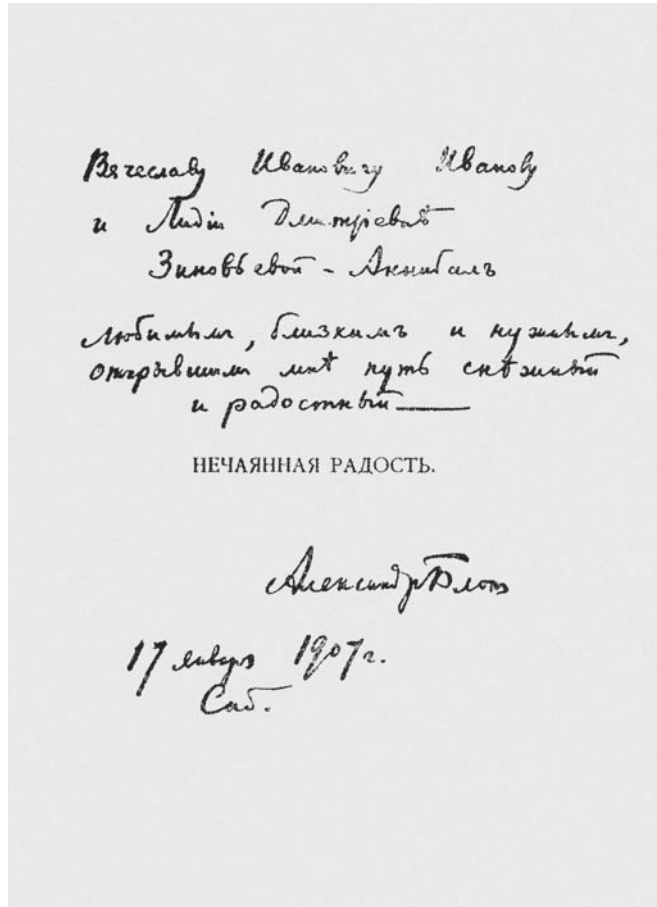 Вячеславу Ивановичу Иванову
и Лидіи Дмитріевнѣ
Зиновьевой-Аннибалъ
любимымъ, близкимъ и нужнымъ,
открывшимъ мнѣ путь снѣжный
и радостный —
НЕЧАЯННАЯ РАДОСТЬ.
Александр Блокъ
17 января 1907 г.
Спб.